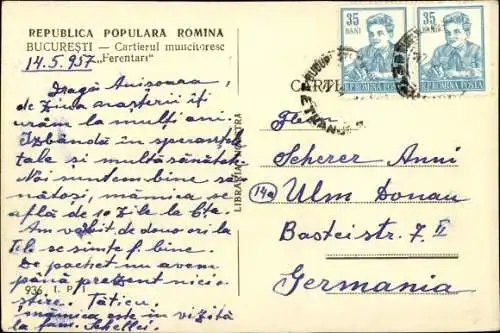 REPUBLICA POPULARA ROMINA
BUCUREȘTI — Cartierul muncitoresc
„Ferentari"
14.5.957
Dragă Anișoara,
de ziua nașterii îți
urăm la mulți ani.
Izbândă în speranțele
tale și multă sănătate.
Noi suntem bine să-
nătoși, mămica se
află de 10 zile la C-ța.
Am vorbit de două ori la
tel. se simte f. bine.
De pachet nu avem
până prezent nicio
știre. Tăticu.
mămica este în vizită
la fam. Schellei.
936 I. P. 1
LIBRĂRIA NOASTRĂ
35
BANI
R.P.ROMINA POSTA
35
BANI
R.P.ROMINA POSTA
Scherer Anni
14a Ulm Donau
Basteistr. 7 II
Germania